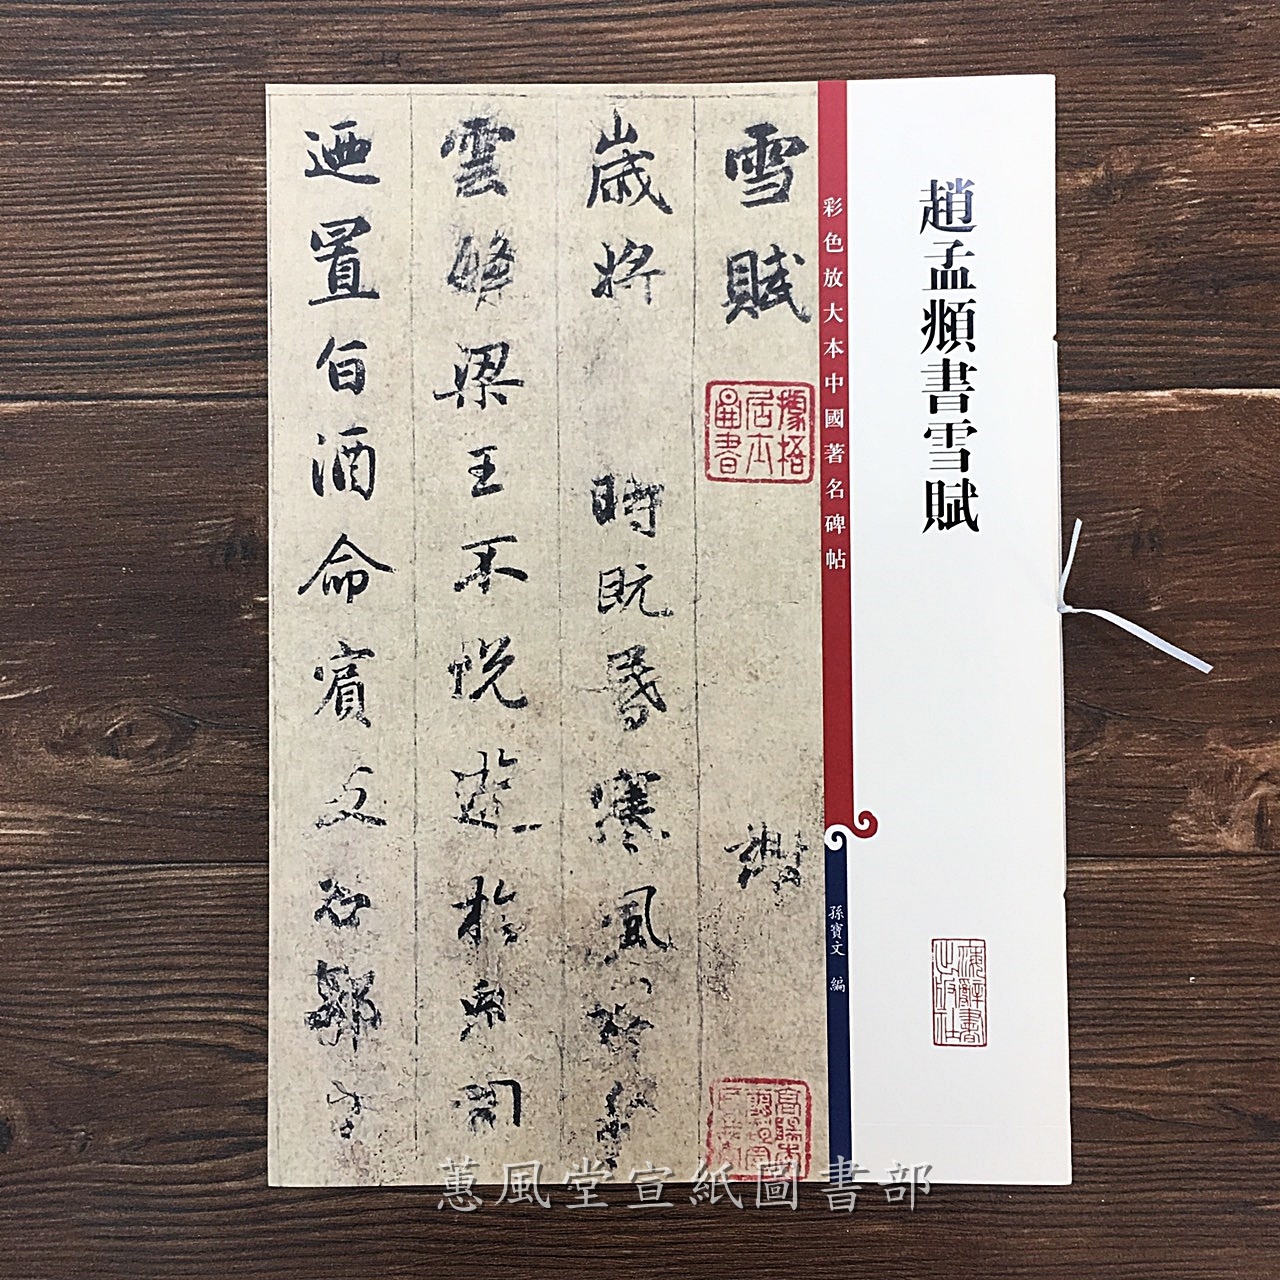 趙孟頫書雪賦
彩色放大本中國著名碑帖
孫寶文 編
雪賦 謝
歲將 時既昬寒風積愁
雲繁梁王不悅遊於兔園
迺置旨酒命賓友召鄒生
蕙風堂宣紙圖書部